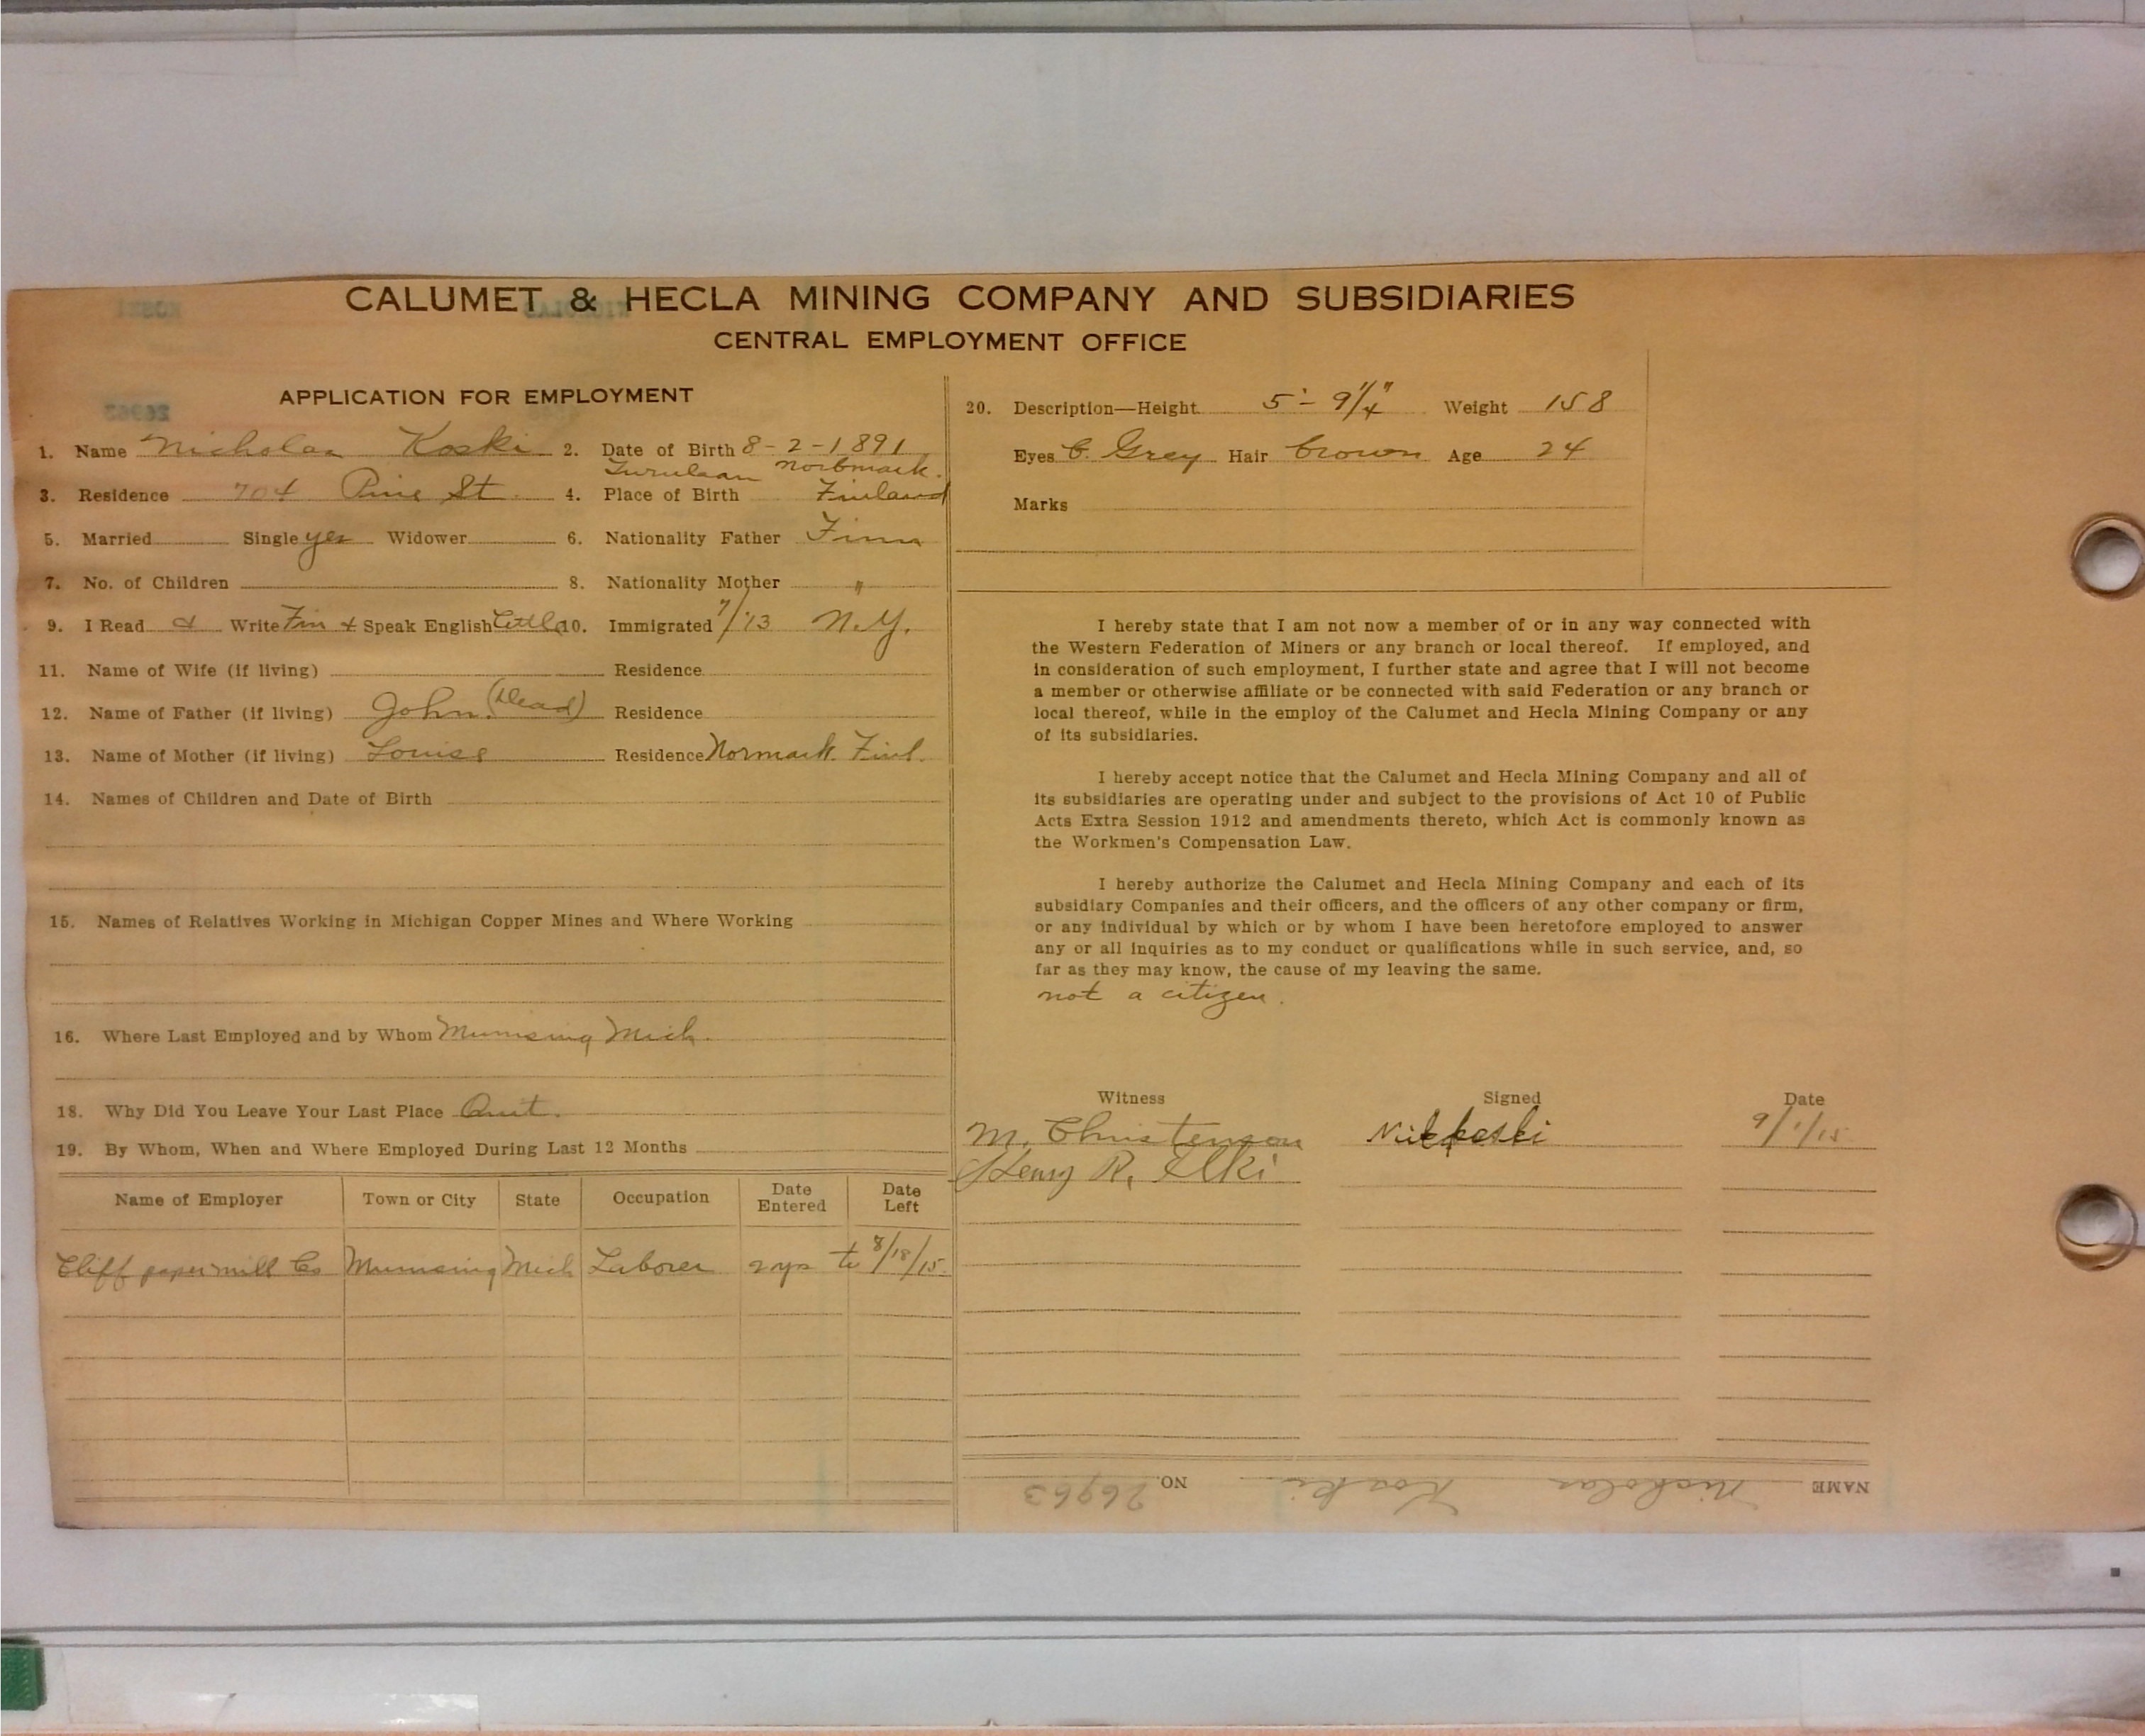 CALUMET & HECLA MINING COMPANY AND SUBSIDIARIES
CENTRAL EMPLOYMENT OFFICE
APPLICATION FOR EMPLOYMENT
1. Name Nicholas Koski 2. Date of Birth 8-2-1891
Norbmark.
3. Residence 704 Pine St. 4. Place of Birth Finland
5. Married Single yes Widower 6. Nationality Father Finn
7. No. of Children 8. Nationality Mother "
9. I Read & Write Fin & Speak English Little 10. Immigrated 7/13 N.Y.
11. Name of Wife (if living) Residence
12. Name of Father (if living) John (Dead) Residence
13. Name of Mother (if living) Louise Residence Normark Finl.
14. Names of Children and Date of Birth
15. Names of Relatives Working in Michigan Copper Mines and Where Working
16. Where Last Employed and by Whom Munising Mich.
18. Why Did You Leave Your Last Place Quit.
19. By Whom, When and Where Employed During Last 12 Months
Name of Employer Town or City State Occupation Date Entered Date Left
Cliff papermill Co Munising Mich Laborer 2 yrs to 8/18/15.
20. Description—Height 5'-9 1/4" Weight 158
Eyes B. Grey Hair brown Age 24
Marks
I hereby state that I am not now a member of or in any way connected with
the Western Federation of Miners or any branch or local thereof. If employed, and
in consideration of such employment, I further state and agree that I will not become
a member or otherwise affiliate or be connected with said Federation or any branch or
local thereof, while in the employ of the Calumet and Hecla Mining Company or any
of its subsidiaries.
I hereby accept notice that the Calumet and Hecla Mining Company and all of
its subsidiaries are operating under and subject to the provisions of Act 10 of Public
Acts Extra Session 1912 and amendments thereto, which Act is commonly known as
the Workmen's Compensation Law.
I hereby authorize the Calumet and Hecla Mining Company and each of its
subsidiary Companies and their officers, and the officers of any other company or firm,
or any individual by which or by whom I have been heretofore employed to answer
any or all inquiries as to my conduct or qualifications while in such service, and, so
far as they may know, the cause of my leaving the same.
not a citizen.
Witness Signed Date
M. Christenson Nik koski 9/1/15
Henry R. Elki
NAME Nicholas Koski NO. 26963